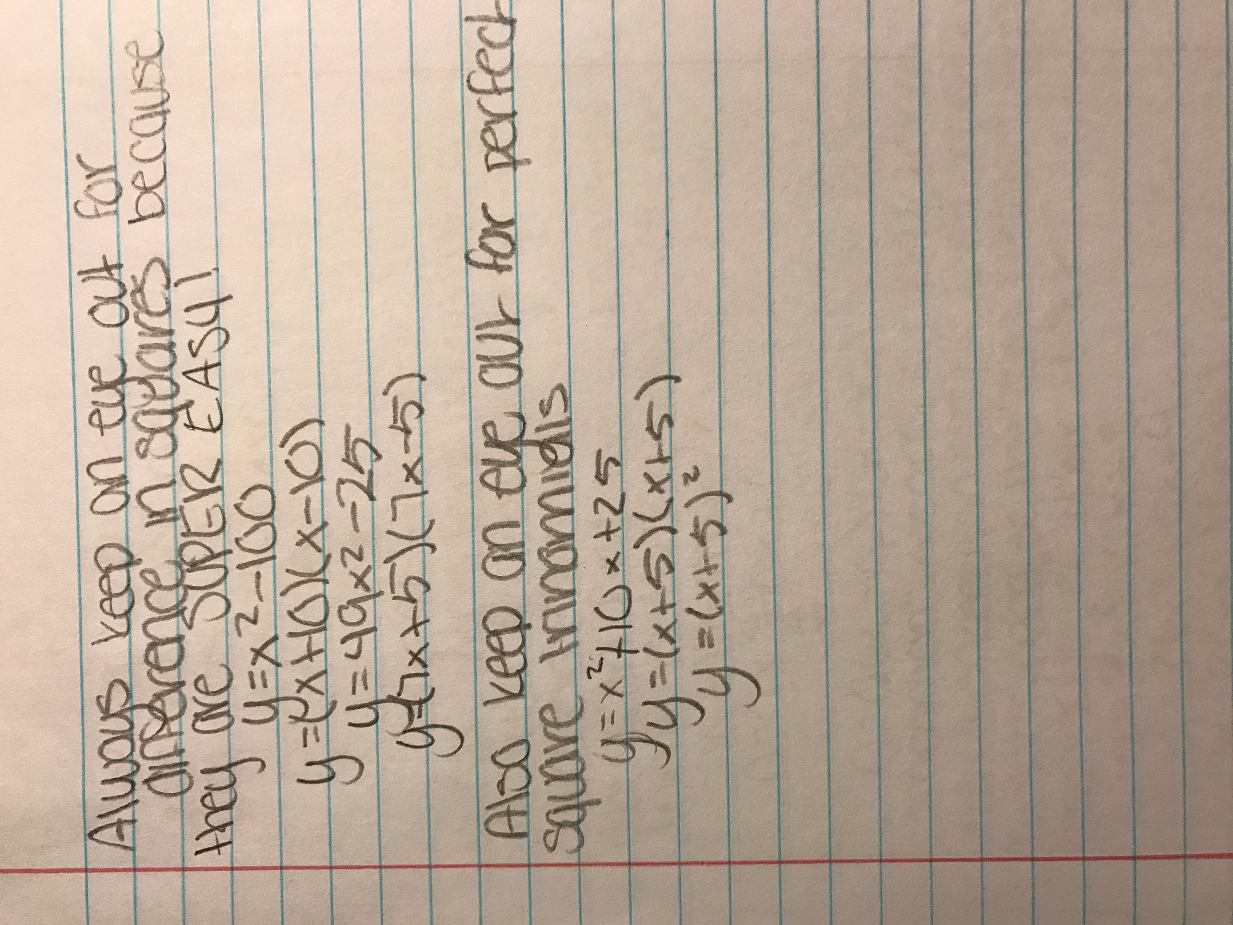 Always keep an eye out for
difference in squares because
they are SUPER EASY!
y=x²-100
y=(x+10)(x-10)
y=49x²-25
y=(7x+5)(7x-5)
Also keep an eye out for perfect
square trinomials
y=x²+10x+25
y=(x+5)(x+5)
y=(x+5)²